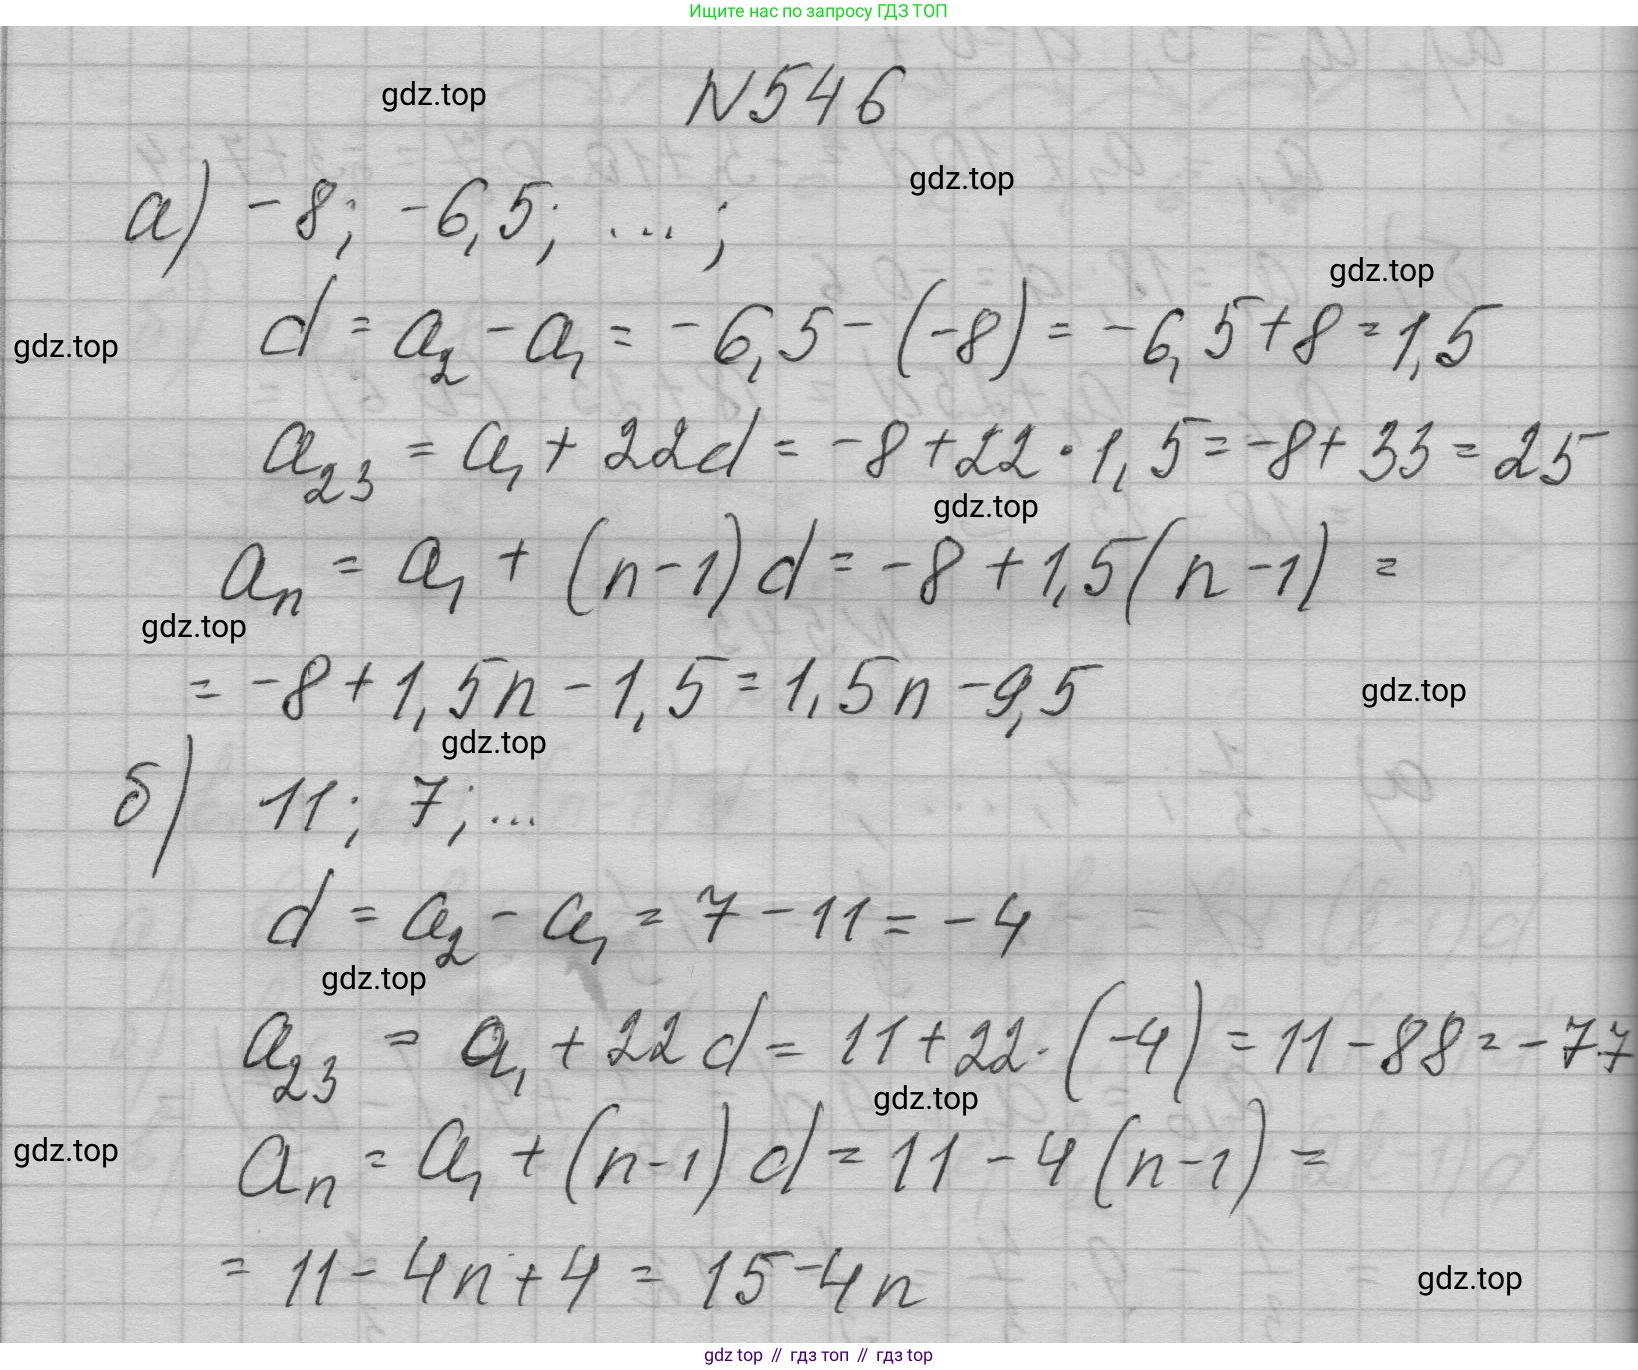 Ищите нас по запросу ГДЗ ТОП
N546
gdz.top
gdz.top
а) -8; -6,5; ...;
gdz.top
d = a₂ - a₁ = -6,5 - (-8) = -6,5 + 8 = 1,5
gdz.top
a₂₃ = a₁ + 22d = -8 + 22 · 1,5 = -8 + 33 = 25
gdz.top
aₙ = a₁ + (n-1)d = -8 + 1,5(n-1) =
gdz.top
= -8 + 1,5n - 1,5 = 1,5n - 9,5
gdz.top
gdz.top
б) 11; 7; ...
d = a₂ - a₁ = 7 - 11 = -4
gdz.top
a₂₃ = a₁ + 22d = 11 + 22 · (-4) = 11 - 88 = -77
gdz.top
gdz.top
aₙ = a₁ + (n-1)d = 11 - 4(n-1) =
= 11 - 4n + 4 = 15 - 4n
gdz.top
gdz top // гдз топ // гдз top